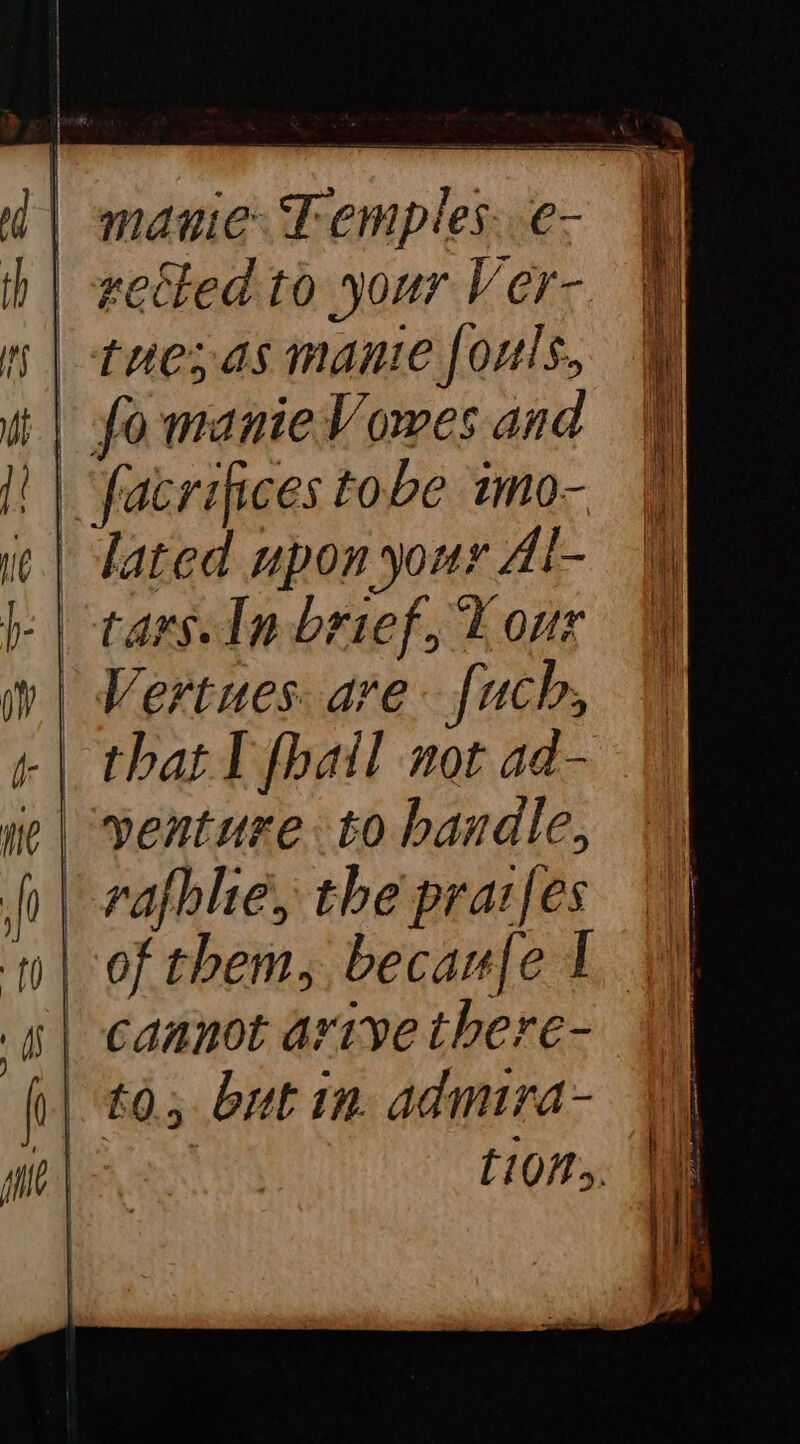 manie Temples e-
rected to your Ver-
tue; as manie ſouls,
ſo manie Vowes and
ſacrifices to be imo-
lated upon your Al-
tars. In brief, Your
Vertues are ſuch,
that I ſhall not ad-
venture to handle,
raſhlie, the praiſes
of them, becauſe I
cannot arive there-
to, but in admira-
tion,